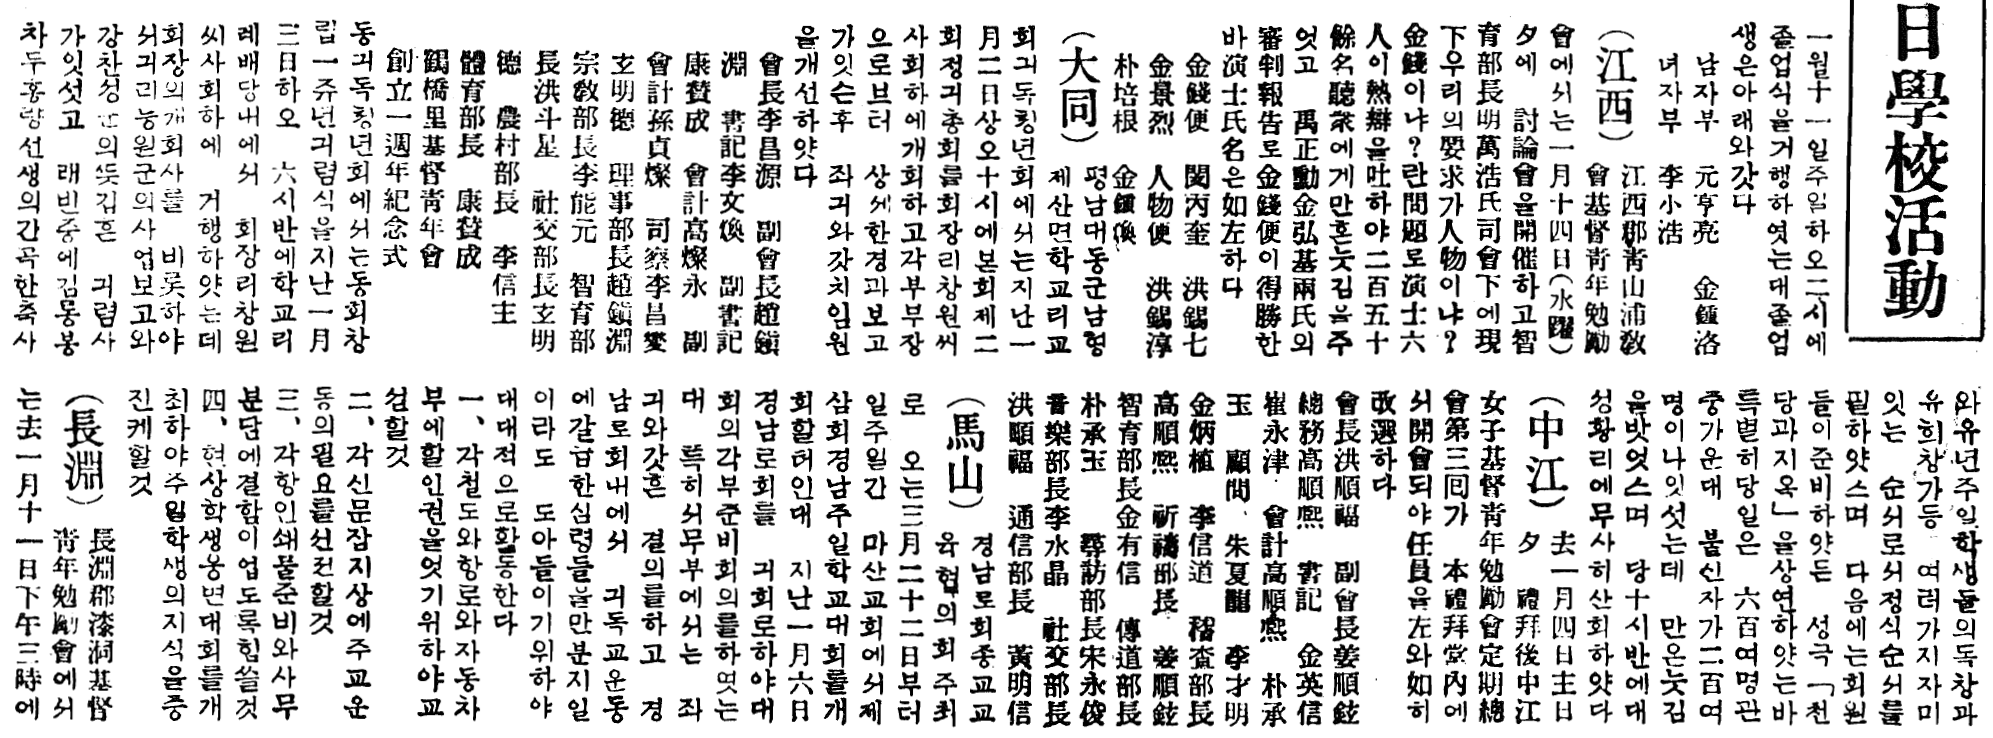 日學校活動
一월十一일주일하오二시에
졸업식을거행하엿는대졸업
생은아래와갓다
남자부 元亨亮 金鍾洛
녀자부 李小浩
(江西) 江西郡靑山浦敎
會基督靑年勉勵
會에서는一月十四日(水曜)
夕에 討論會을開催하고智
育部長明萬浩氏司會下에現
下우리의要求가人物이냐?
金錢이냐?란問題로演士六
人이熱辯을吐하야二百五十
餘名聽衆에게만흔늣김을주
엇고 禹正勳金弘基兩氏의
審判報告로金錢便이得勝한
바演士氏名은如左하다
金錢便 閔丙奎 洪錫七
金景烈 人物便 洪錫淳
朴培根 金鎭煥
(大同) 평남대동군남형
제산면학교리교
회긔독쳥년회에서는지난一
月二日상오十시에본회제二
회정긔총회를회장리창원씨
사회하에개회하고각부부장
으로브터 상세한경과보고
가잇슨후 좌긔와갓치임원
을개선하얏다
會長李昌源 副會長趙鎭
淵 書記李文煥 副書記
康贊成 會計高燦永 副
會計孫貞燦 司察李昌燮
玄明德 理事部長趙鎭淵
宗敎部長李能元 智育部
長洪斗星 社交部長玄明
德 農村部長 李信主
體育部長 康贊成
鶴橋里基督靑年會
創立一週年紀念式
동긔독쳥년회에서는동회창
립一쥬년긔렴식을지난一月
三日하오 六시반에학교리
례배당내에서 회장리창원
씨사회하에 거행하얏는데
회장의개회사를 비롯하야
서긔리능원군의사업보고와
강찬성군의뜻김흔 긔렴사
가잇섯고 래빈중에김몽봉
차두흥량선생의간곡한축사
와유년주일학생들의독창과
유희창가등 여러가지자미
잇는 순서로서정식순서를
필하얏스며 다음에는회원
들이준비하얏든 성극「천
당과지옥」을상연하얏는바
특별히당일은 六百여명관
중가운대 불신자가二百여
명이나잇섯는데 만은늣김
을밧엇스며 당十시반에대
성황리에무사히산회하얏다
(中江) 去一月四日主日
夕 禮拜後中江
女子基督靑年勉勵會定期總
會第三回가 本禮拜堂內에
서開會되야任員을左와如히
改選하다
會長洪順福 副會長姜順鉉
總務高順熙 書記 金英信
崔永津 會計高順熙 朴承
玉 顧問、朱夏龍 李才明
金炳植 李信道 稽査部長
高順熙 祈禱部長 姜順鉉
智育部長金有信 傳道部長
朴承玉 尋訪部長宋永俊
音樂部長李水晶 社交部長
洪順福 通信部長 黃明信
(馬山) 경남로회종교교
육협의회주최
로 오는三月二十二日부터
일주일간 마산교회에서제
삼회경남주일학교대회를개
회할허인대 지난一月六日
경남로회를 긔회로하야대
회의각부준비회의를하엿는
대 특히서무부에서는 좌
긔와갓흔 결의를하고 경
남로회내에서 긔독교운동
에갈급한심령들을만분지일
이라도 도아들이기위하야
대대적으로활동한다
一、각철도와항로와자동차
부에할인권을엇기위하야교
섭할것
二、각신문잡지상에주교운
동의필요를선전할것
三、각항인쇄물준비와사무
분담에결함이업도록힘쓸것
四、현상학생웅변대회를개
최하야주일학생의지식을증
진케할것
(長淵) 長淵郡漆洞基督
靑年勉勵會에서
는去一月十一日下午三時에